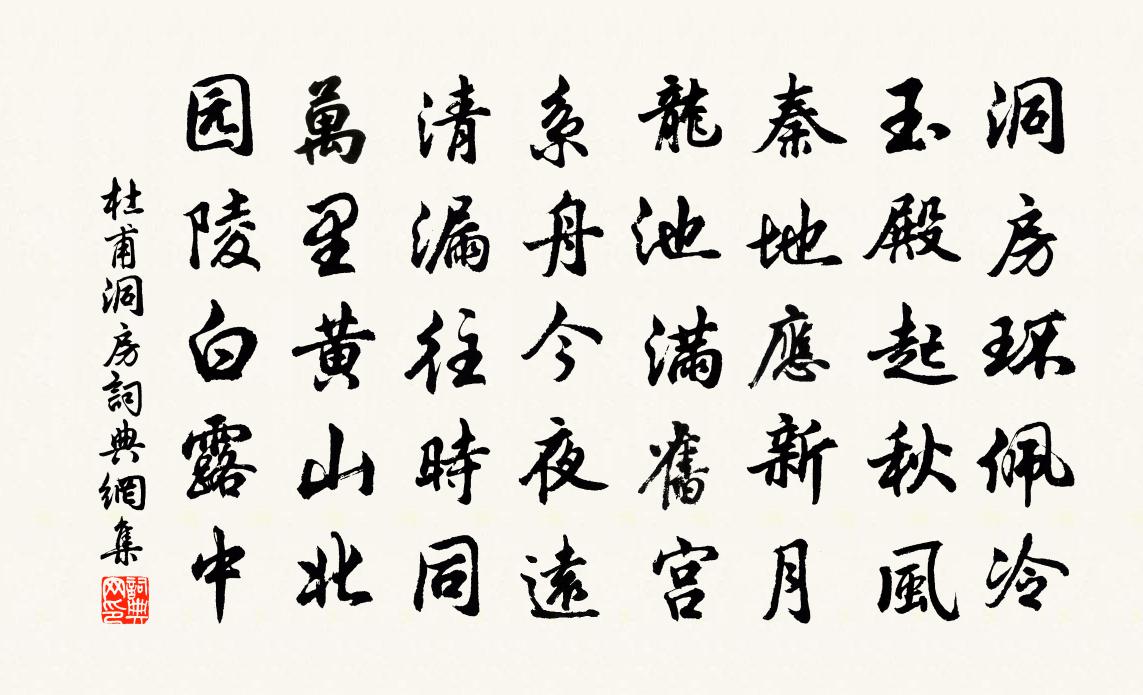 洞房环佩冷
玉殿起秋風
秦地應新月
龍池滿舊宫
系舟今夜遠
清漏往時同
萬里黄山北
园陵白露中
杜甫洞房詞典網集
詞典网印